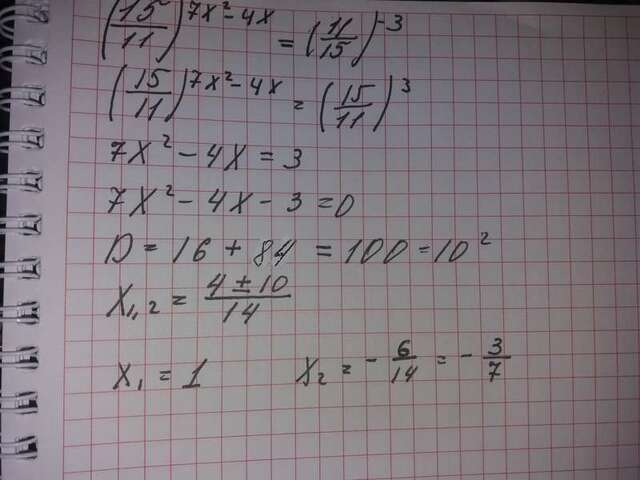 (15/11)^(7x²-4x) = (11/15)^(-3)
(15/11)^(7x²-4x) = (15/11)^3
7x² - 4x = 3
7x² - 4x - 3 = 0
D = 16 + 84 = 100 = 10²
x₁,₂ = (4 ± 10)/14
x₁ = 1 x₂ = - 6/14 = - 3/7